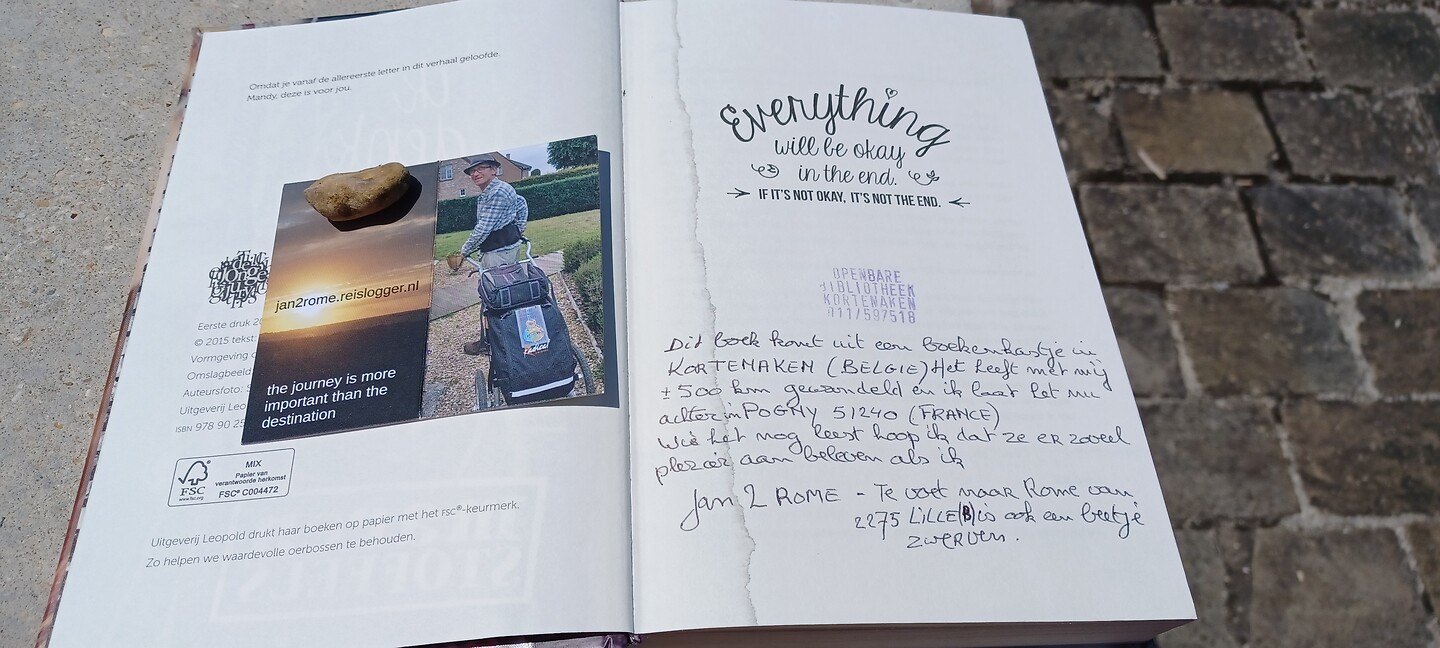 Omdat je vanaf de allereerste letter in dit verhaal geloofde.
Mandy, deze is voor jou.
jan2rome.reislogger.nl
the journey is more
important than the
destination
Eerste druk 20
© 2015 tekst:
Vormgeving
Omslagbeeld
Auteursfoto:
Uitgeverij Leo
ISBN 978 90 25
FSC
www.fsc.org
MIX
Papier van
verantwoorde herkomst
FSC® C004472
Uitgeverij Leopold drukt haar boeken op papier met het FSC®-keurmerk.
Zo helpen we waardevolle oerbossen te behouden.
Everything
will be okay
in the end.
IF IT'S NOT OKAY, IT'S NOT THE END.
OPENBARE
BIBLIOTHEEK
KORTENAKEN
011/597518
Dit boek komt uit een boekenkastje in
KORTENAKEN (BELGIE) Het heeft met mij
± 500 km gewandeld en ik laat het nu
achter in POGNY 51240 (FRANCE)
Wie het nog leest hoop ik dat ze er zoveel
plezier aan beleven als ik
Jan 2 ROME - Te voet naar Rome van
2275 LILLE (B) is ook een beetje
zwerven.